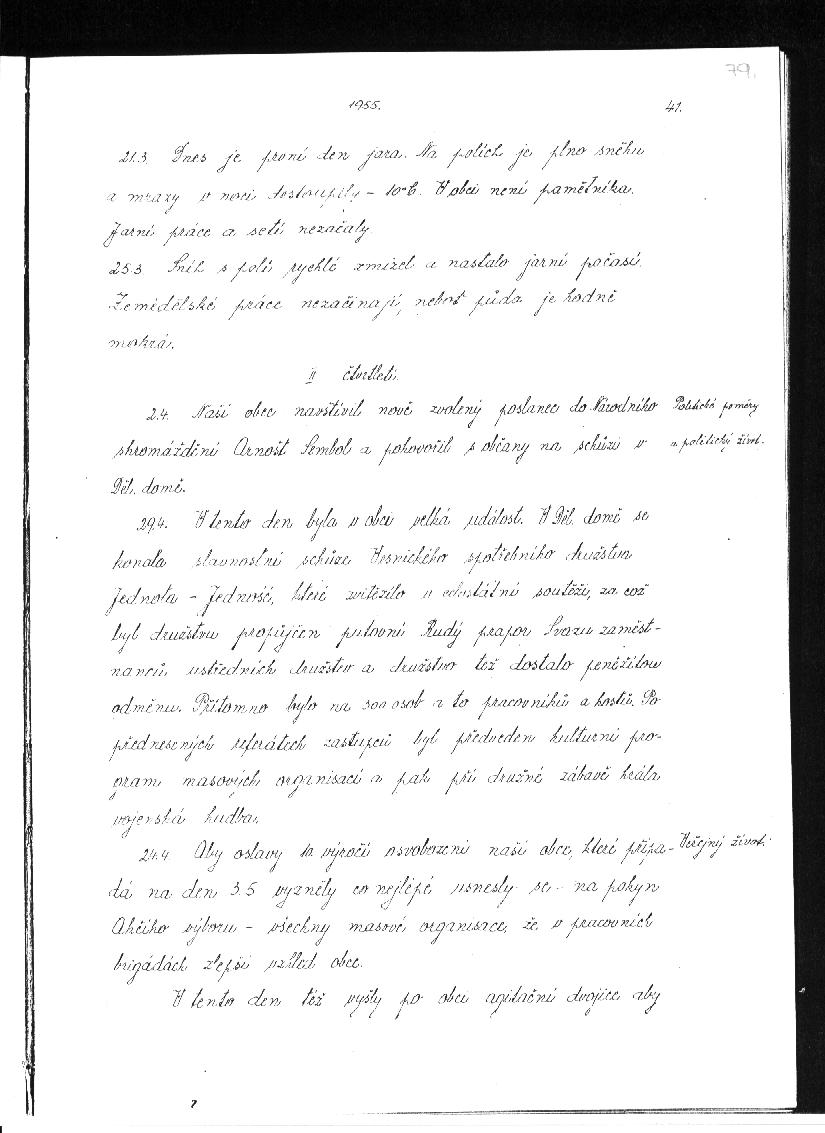 79.
1955. 41.
21.3. Dnes je první den jara. Na polích je plno sněhu
a mrazy v noci dostoupily - 10°C. V obci není pamětníka.
Jarní práce a setí nezačaly
25.3 Sníh s polí rychlé zmizel a nastalo jarní počasí.
Zemědělské práce nezačínají, neboť půda je hodně
mokrá.
II čtvrtletí.
2.4. Naši obec navštívil nově zvolený poslanec do Národního Politické poměry
shromáždění Arnošt Sembol a pohovořil s občany na schůzi v a politický život.
Děl. domě.
29.4. V tento den byla v obci velká událost. V Děl. domě se
konala slavnostní schůze Vesnického spotřebního družstva
Jednota - Jedność, které zvítězilo v celostátní soutěži, za což
byl družstvu propůjčen putovní Rudý prapor Svazu zaměst-
nanců ústředních družstev a družstvo též dostalo peněžitou
odměnu. Přítomno bylo na 300 osob a to pracovníků a hostů. Po
přednesených referátech zástupců byl předveden kulturní pro-
gram masových organisací a pak při družné zábavě hrála
vojenská hudba.
24.4. Aby oslavy 10 výročí osvobození naší obce, které připa- Veřejný život.
dá na den 3.5 vyzněly co nejlépe usnesly se - na pokyn
Akčího výboru - všechny masové organisace, že v pracovních
brigádách zlepší vzhled obce.
V tento den též vyšly po obci agitační dvojice aby
7